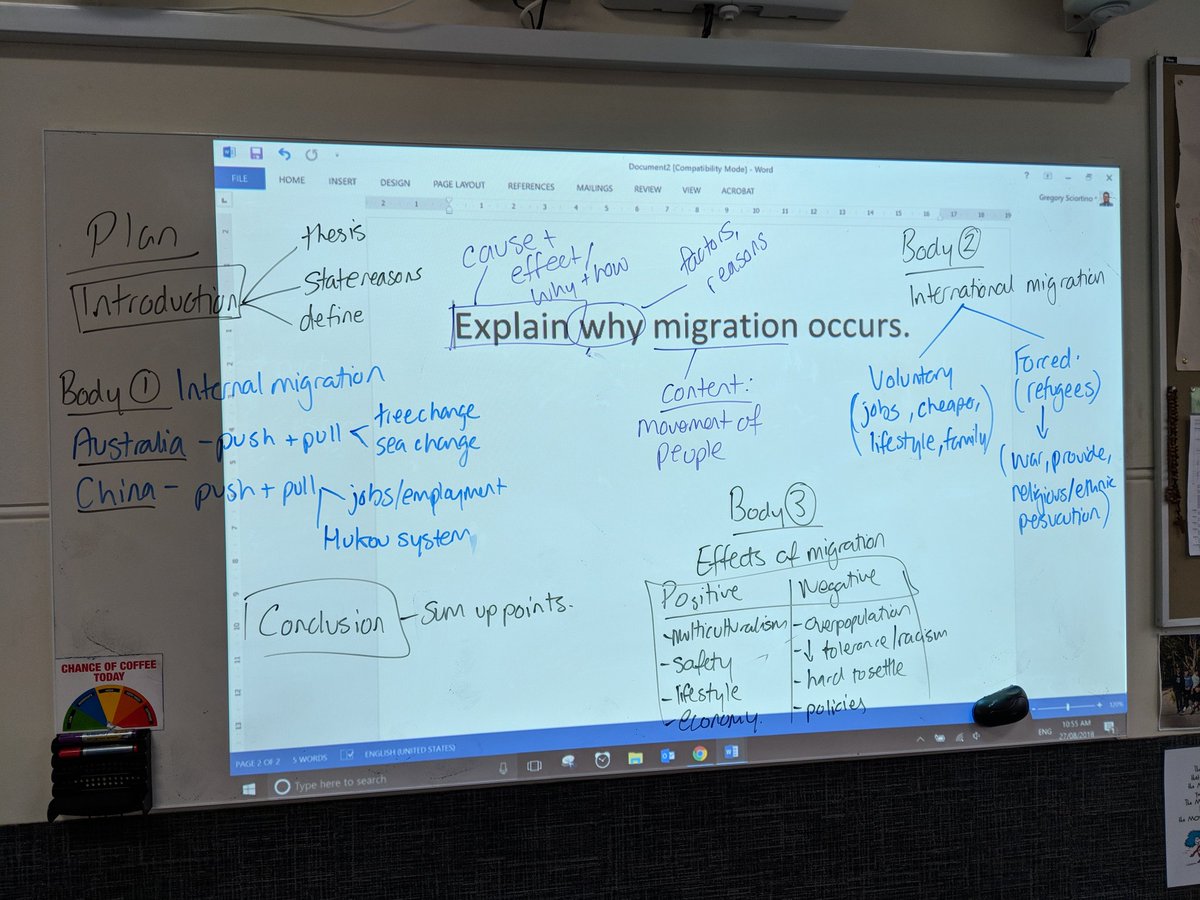 Document2 [Compatibility Mode] - Word
FILE HOME INSERT DESIGN PAGE LAYOUT REFERENCES MAILINGS REVIEW VIEW ACROBAT
Gregory Sciortino
Plan
Introduction
thesis
state reasons
define
cause +
effect/
why + how
factors,
reasons
Explain why migration occurs.
Content:
movement of
people
Body 1 Internal migration
Australia - push + pull
treechange
sea change
China - push + pull
jobs/employment
Hukou system
Body 2
International migration
Voluntary
(jobs, cheaper,
lifestyle, family)
Forced.
(refugees)
(war, provide,
religious/ethnic
pesucution)
Body 3
Effects of migration
Positive
- multiculturalism
- safety
- lifestyle
- economy.
Negative
- overpopulation
- ↓ tolerance/racism
- hard to settle
- policies
Conclusion - sum up points.
CHANCE OF COFFEE
TODAY
PAGE 2 OF 2 5 WORDS ENGLISH (UNITED STATES)
120%
Type here to search
ENG
10:55 AM
27/08/2018